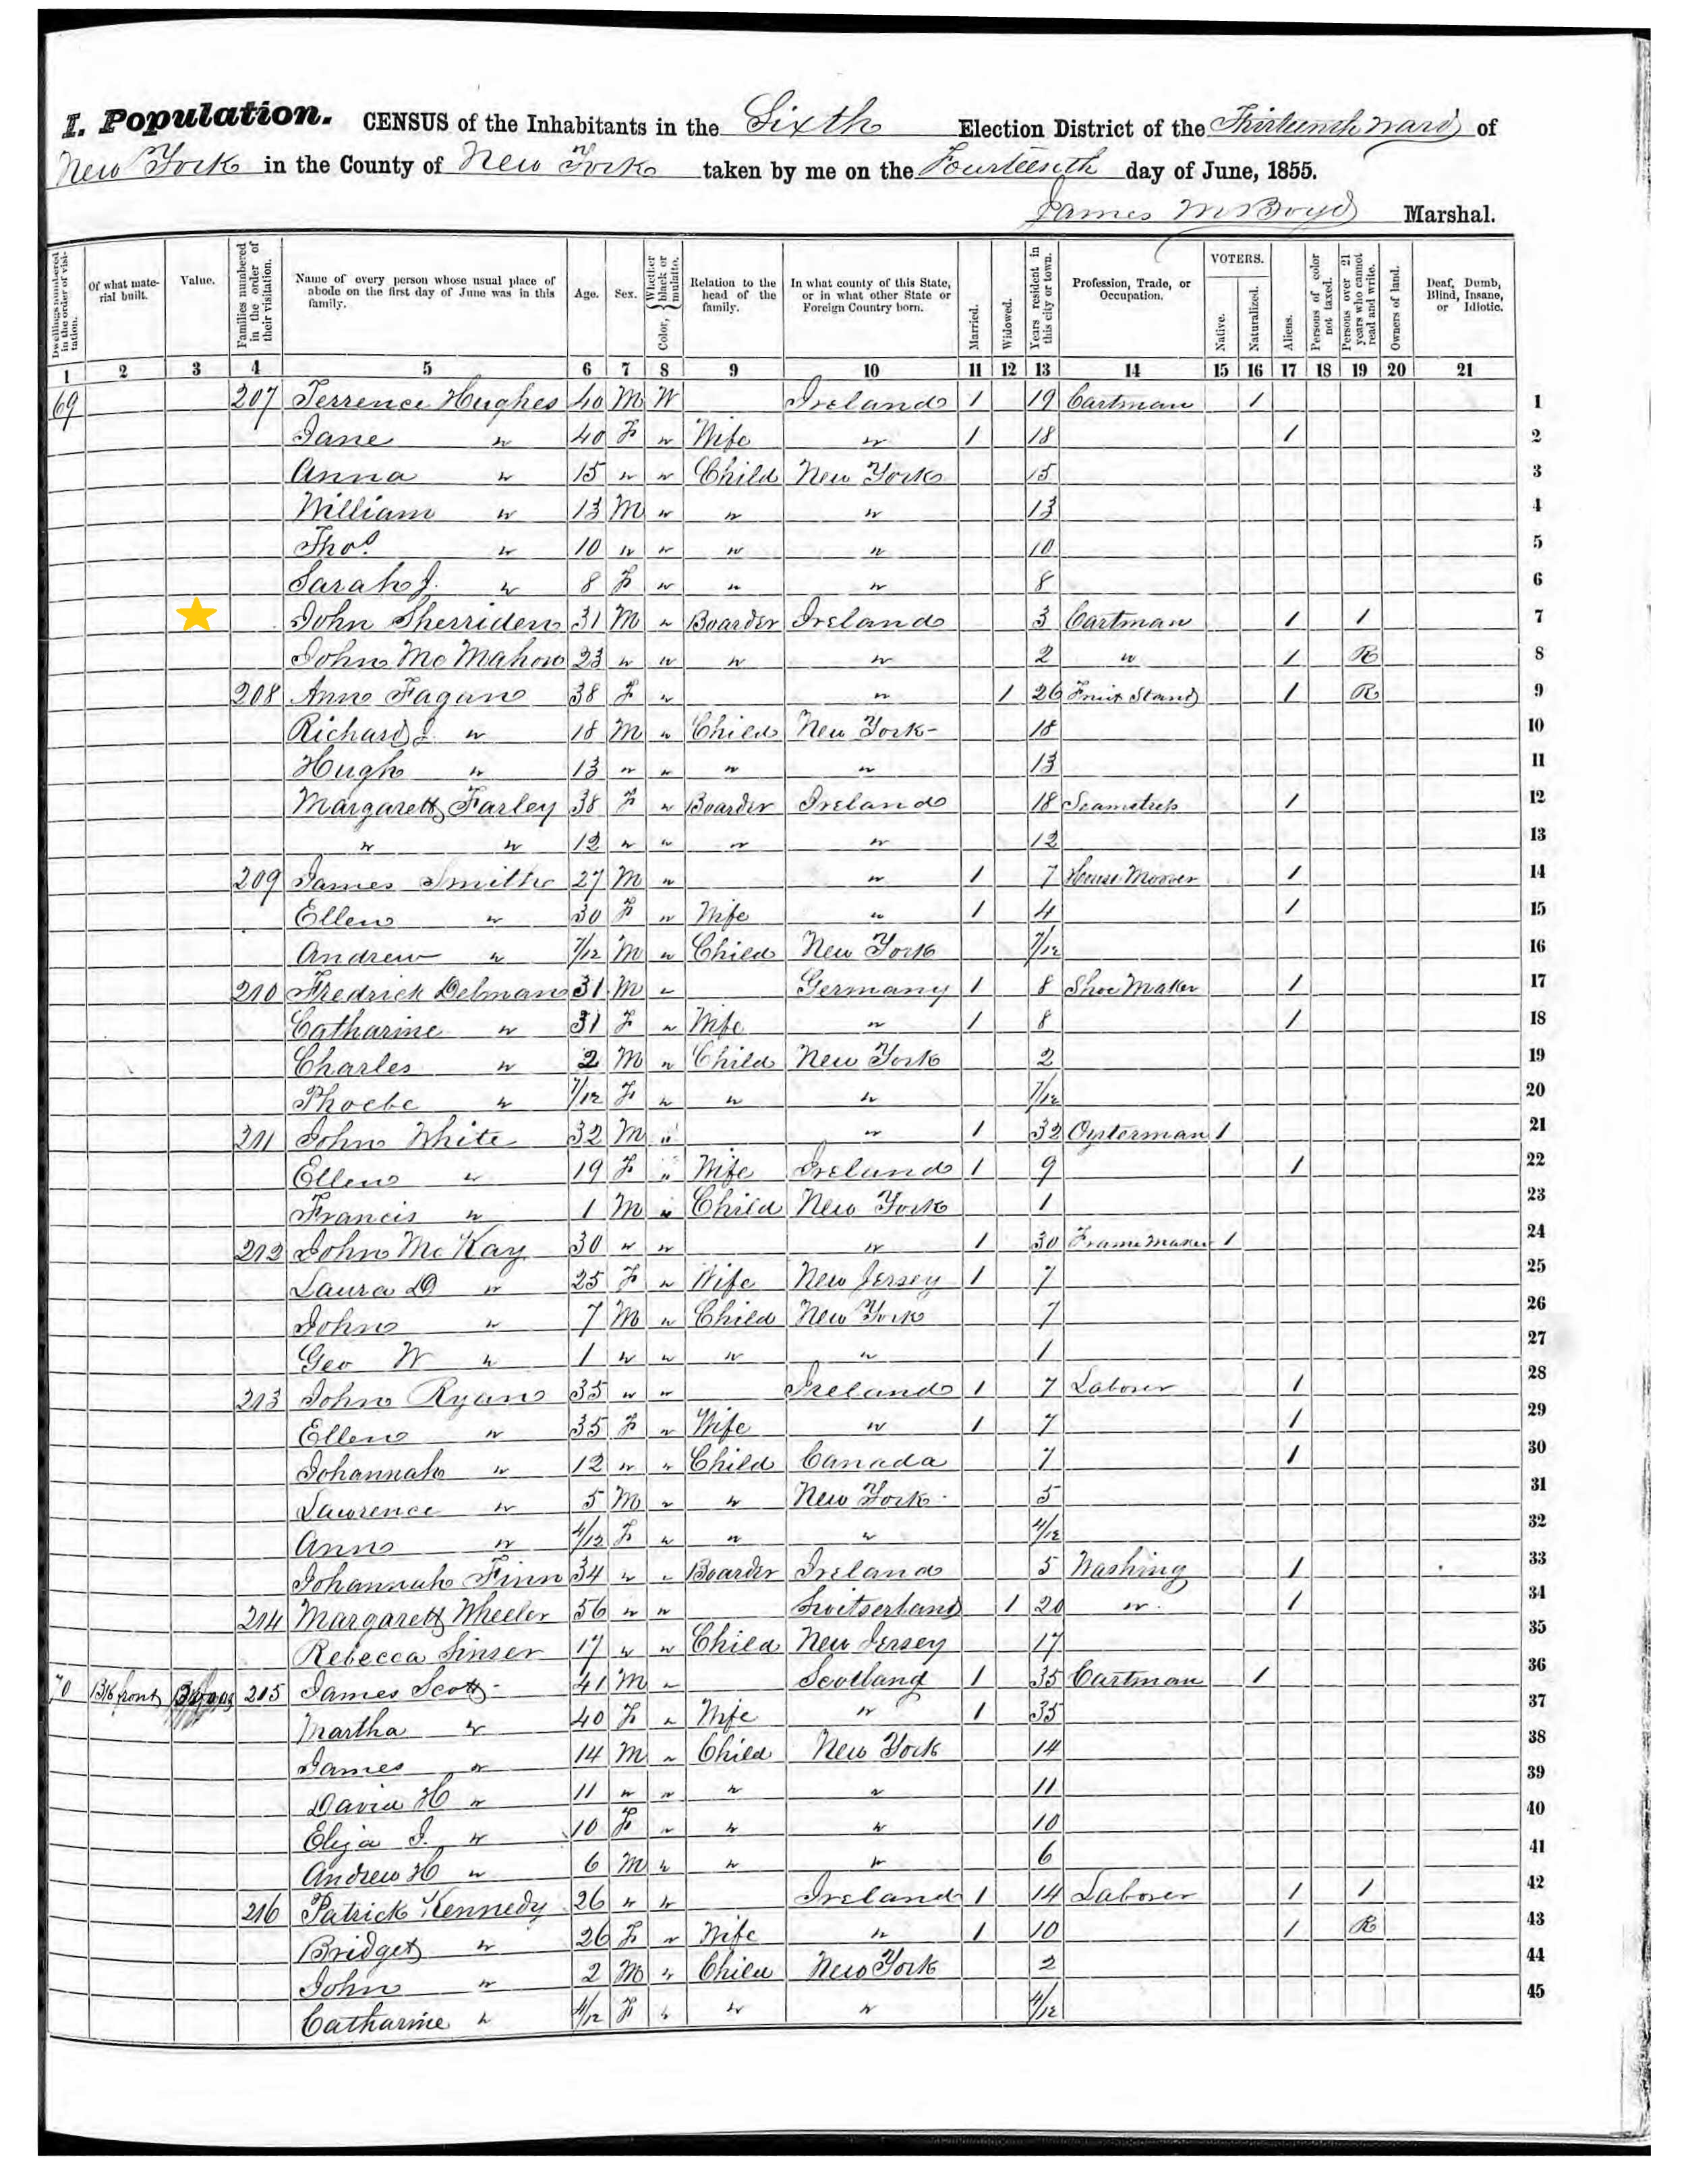 I. Population. CENSUS of the Inhabitants in the Sixth Election District of the Thirteenth Ward of
New York in the County of New York taken by me on the Fourteenth day of June, 1855.
James M Boyd Marshal.
Dwellings numbered in the order of visitation. Of what material built. Value. Families numbered in the order of their visitation. Name of every person whose usual place of abode on the first day of June was in this family. Age. Sex. Color, { Whether black or mulatto. Relation to the head of the family. In what county of this State, or in what other State or Foreign Country born. Married. Widowed. Years resident in this city or town. Profession, Trade, or Occupation. VOTERS. Native. Naturalized. Aliens. Persons of color not taxed. Persons over 21 years who cannot read and write. Owners of land. Deaf, Dumb, Blind, Insane, or Idiotic.
1 2 3 4 5 6 7 8 9 10 11 12 13 14 15 16 17 18 19 20 21
69 207 Terrence Hughes 40 M W Ireland 1 19 Cartman 1 1
Jane " 40 F " Wife " 1 18 1 2
Anna " 15 " " Child New York 15 3
William " 13 M " " " 13 4
Thos. " 10 " " " " 10 5
Sarah J. " 8 F " " " 8 6
John Sherriden 31 M " Boarder Ireland 3 Cartman 1 1 7
John Mc Mahon 23 " " " " 2 " 1 R 8
208 Ann Fagan 38 F " " 1 26 Fruit Stand 1 R 9
Richard J. " 18 M " Child New York 18 10
Hugh " 13 " " " " 13 11
Margarett Farley 38 F " Boarder Ireland 18 Seamstress 1 12
" " 12 " " " " 12 13
209 James Smith 27 M " " 1 7 House Moover 1 14
Ellen " 30 F " Wife " 1 4 1 15
Andrew " 7/12 M " Child New York 7/12 16
210 Fredrick Delman 31 M " Germany 1 8 Shoe Maker 1 17
Catharine " 31 F " Wife " 1 8 1 18
Charles " 2 M " Child New York 2 19
Phoebe " 7/12 F " " " 7/12 20
211 John White 32 M " " 1 32 Oysterman 1 21
Ellen " 19 F " Wife Ireland 1 9 1 22
Francis " 1 M " Child New York 1 23
212 John Mc Kay 30 " " " 1 30 Frame Maker 1 24
Laura D " 25 F " Wife New Jersey 1 7 25
John " 7 M " Child New York 7 26
Geo W " 1 " " " " 1 27
213 John Ryan 35 " " Ireland 1 7 Laborer 1 28
Ellen " 35 F " Wife " 1 7 1 29
Johannah " 12 " " Child Canada 7 1 30
Lawrence " 5 M " " New York 5 31
Ann " 4/12 F " " " 4/12 32
Johannah Finn 34 " " Boarder Ireland 5 Washing 1 33
214 Margarett Wheeler 56 " " Switserland 1 20 " 1 34
Rebecca Sinser 17 " " Child New Jersey 17 35
70 215 James Scott 41 M " Scotland 1 35 Cartman 1 36
Martha " 40 F " Wife " 1 35 37
James " 14 M " Child New York 14 38
David H " 11 " " " " 11 39
Eliza J. " 10 F " " " 10 40
Andrew H " 6 M " " " 6 41
216 Patrick Kennedy 26 " " Ireland 1 14 Laborer 1 1 42
Bridget " 26 F " Wife " 1 10 1 R 43
John " 2 M " Child New York 2 44
Catharine " 4/12 F " " " 4/12 45